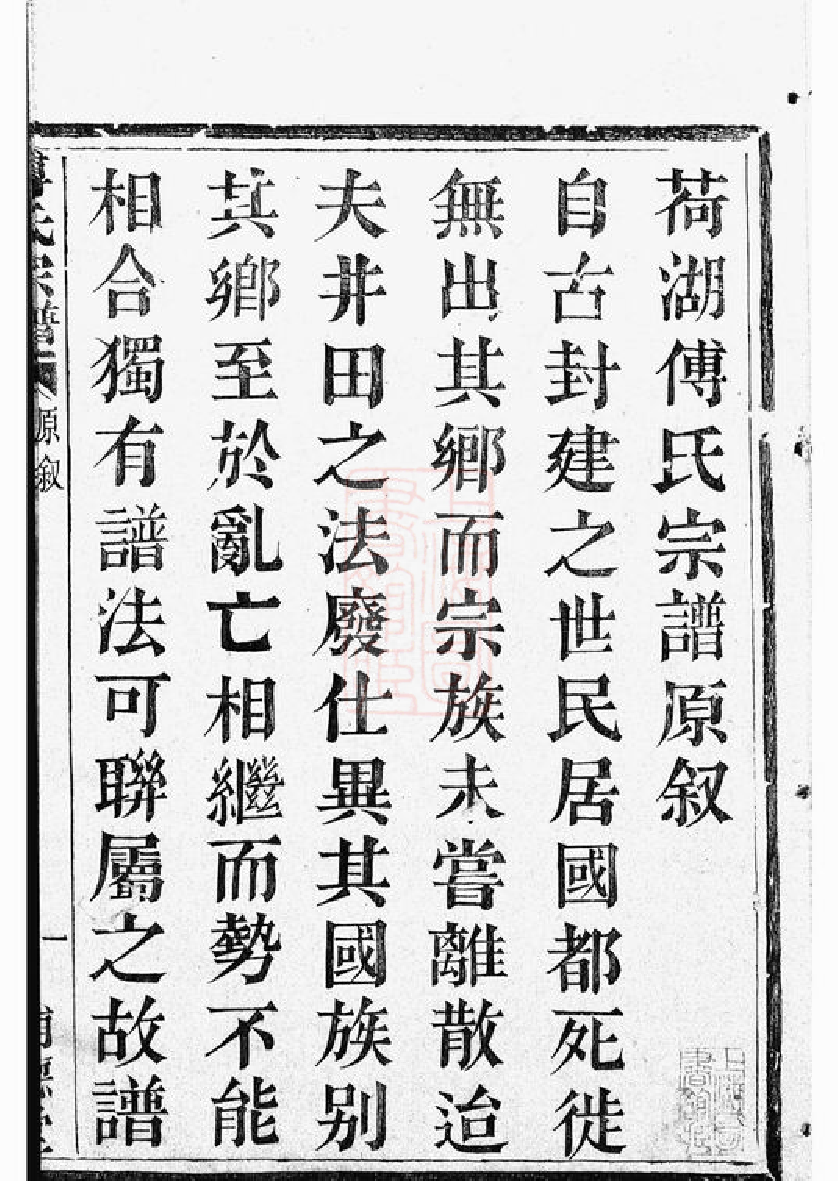 荷湖傅氏宗譜原叙
自古封建之世民居國都死徙
無出其鄉而宗族未嘗離散迨
夫井田之法廢仕異其國族别
其鄉至於亂亡相繼而勢不能
相合獨有譜法可聯屬之故譜
氏宗譜
原叙
一